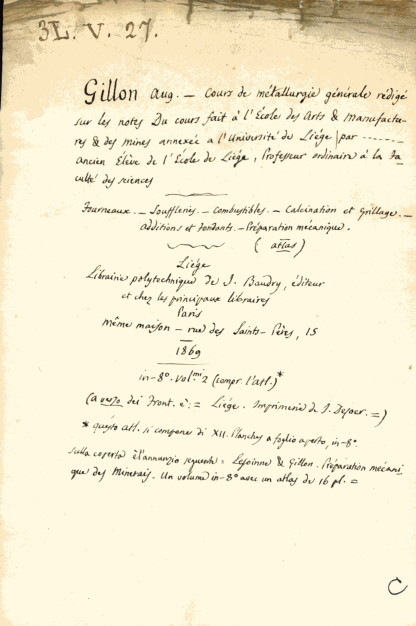 3L. V. 27.
Gillon Aug. — Cours de métallurgie générale rédigé
sur les notes Du cours fait à l'École des Arts & Manufactu-
res & des mines annexée a l'Université de Liège | par -------
ancien Élève de l'École de Liège, Professeur ordinaire à la Fa
culté des sciences
Fourneaux. — Souffleries. — Combustibles. — Calcination et Grillage. —
Additions et fondants. — Préparation mécanique.
(atlas)
Liége
Librairie polytechnique de J. Baudry, éditeur
et chez les principaux libraires
Paris
même maison — rue des Saints-Pères, 15
1869
in-8°. Vol.mi 2 (compr. l'atl.)*
(a verso del Front. è: = Liége. Imprimerie de J. Desoer. =)
* questo atl. si compone di XII. Planches a foglio aperto, in-8°.
sulla coperta è l'annunzio seguente = Lesoinne & Gillon. Préparation mécani
que des Minerais. Un volume in-8° avec un atlas de 16 pl. =
C